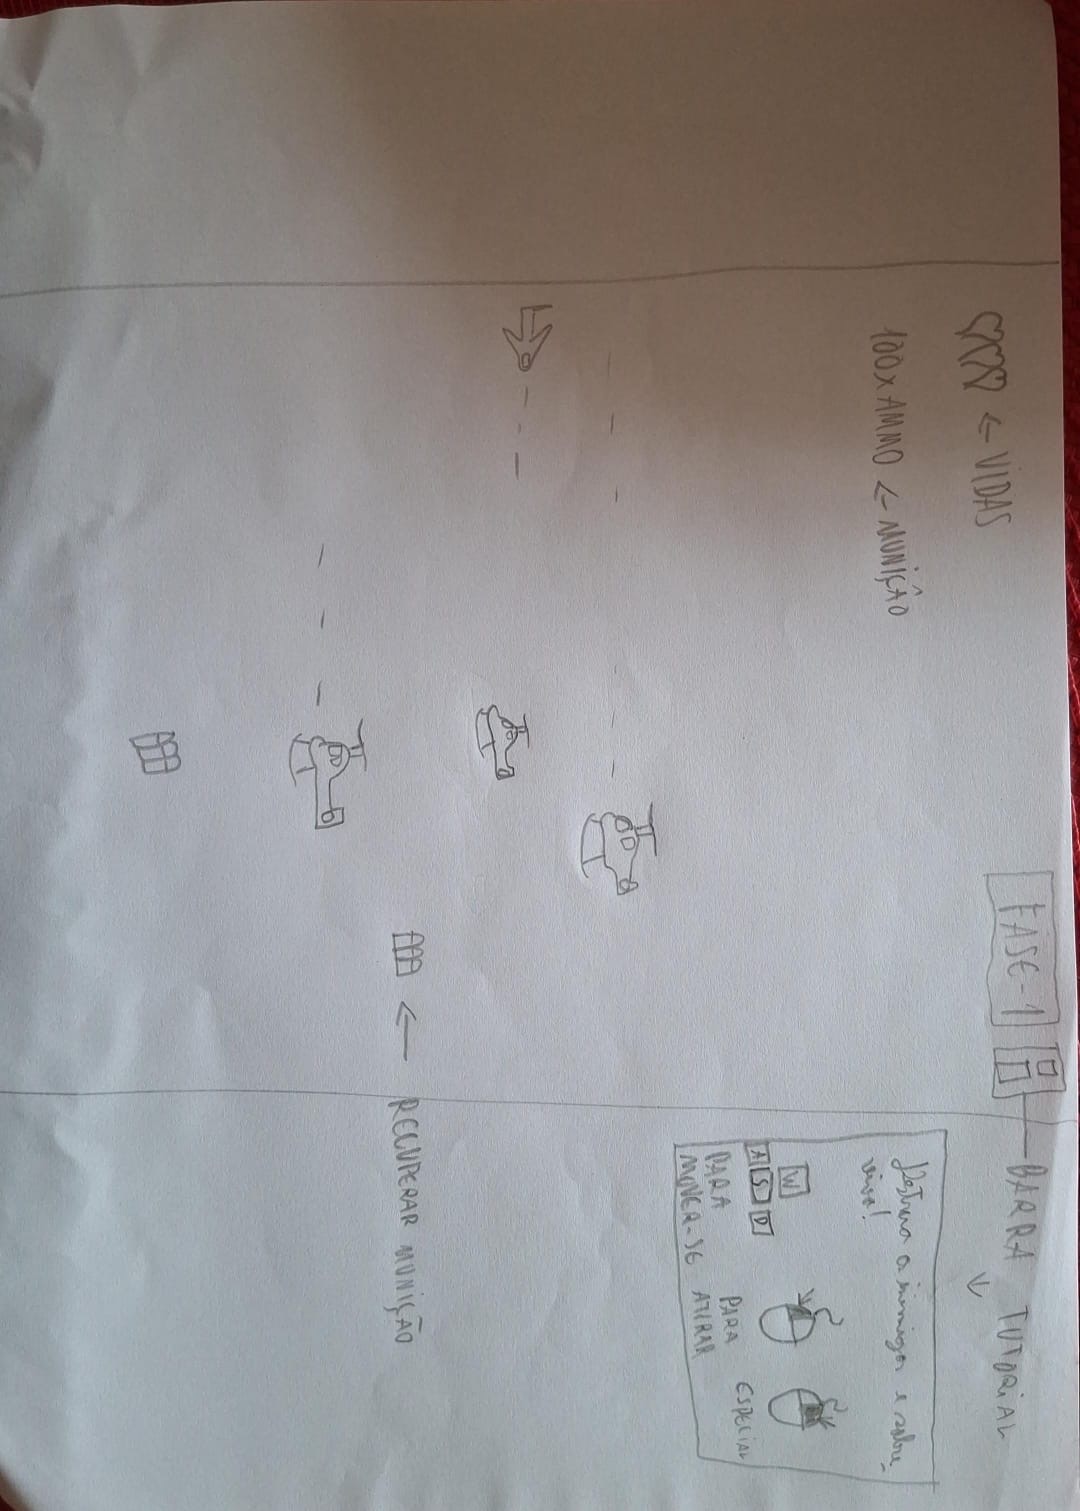 ← VIDAS
100x AMMO ← MUNIÇÃO
FASE-1
BARRA TUTORIAL
↓
Destrua os inimigos e sobre-
viva!
W
A S D
PARA
MOVER-SE
PARA
ATIRAR
ESPECIAL
← RECUPERAR MUNIÇÃO